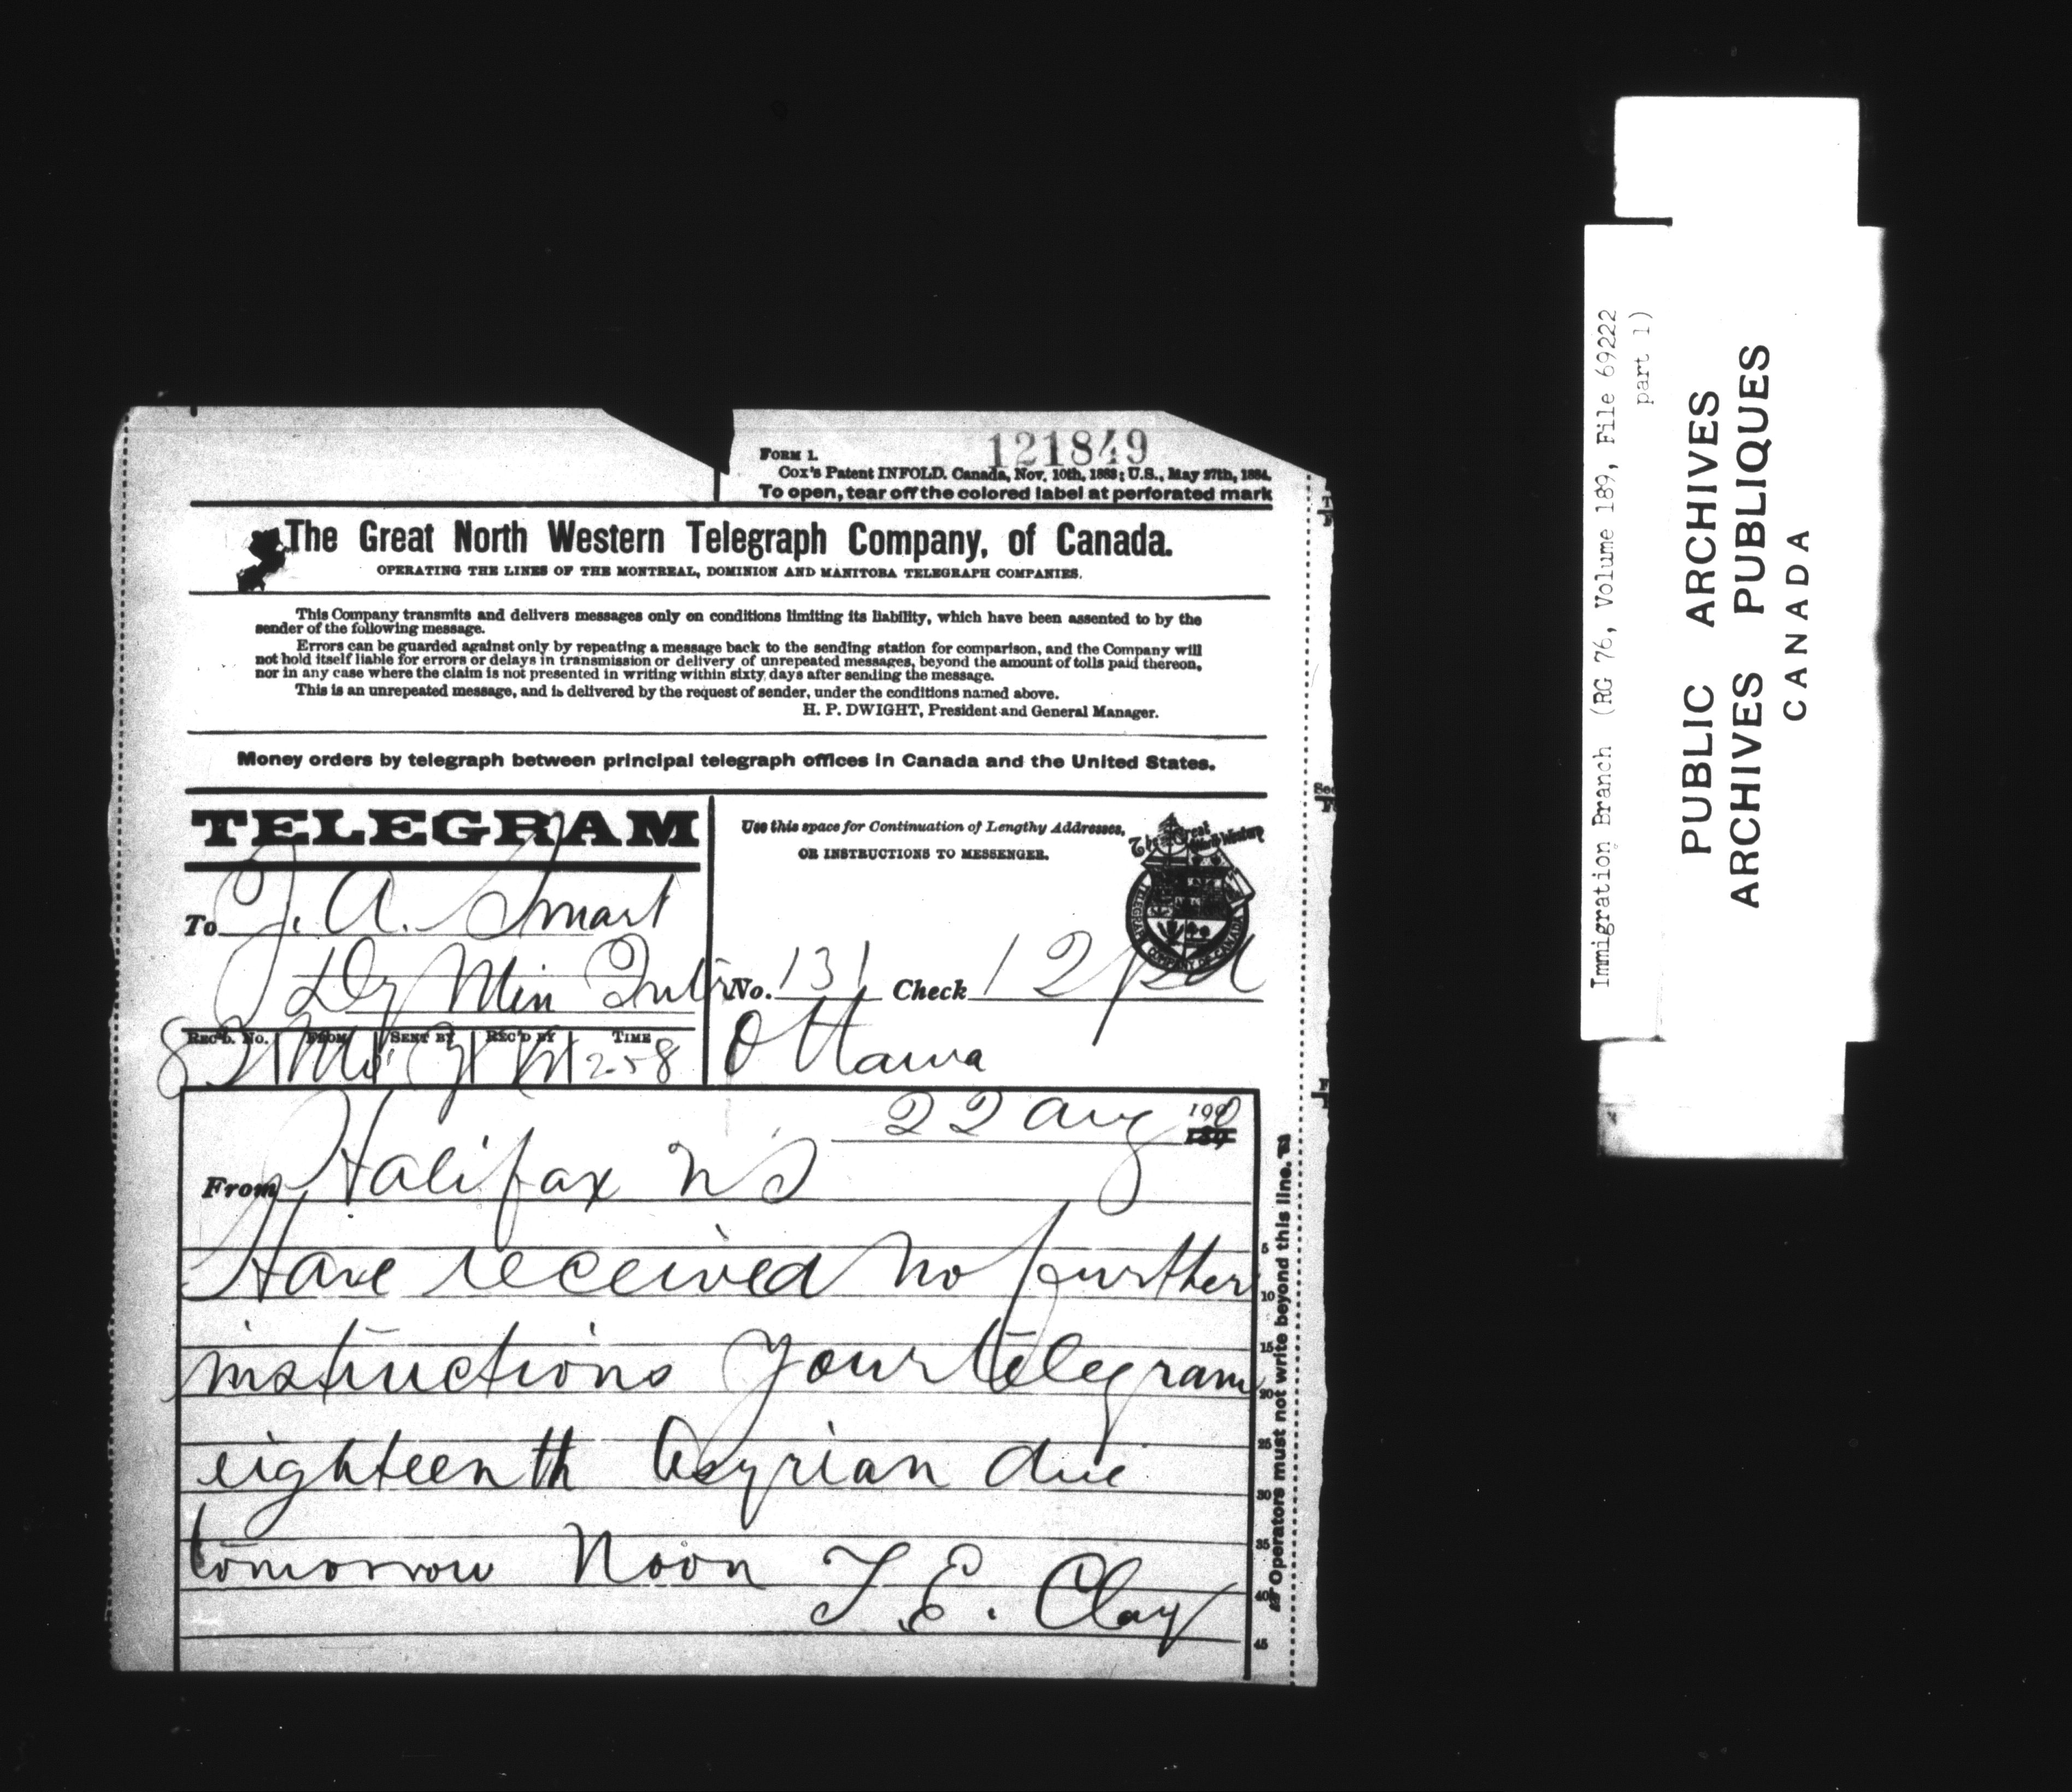 121849
FORM 1.
Cox's Patent INFOLD. Canada, Nov. 10th, 1883; U.S., May 27th, 1884.
To open, tear off the colored label at perforated mark
The Great North Western Telegraph Company, of Canada.
OPERATING THE LINES OF THE MONTREAL, DOMINION AND MANITOBA TELEGRAPH COMPANIES.
This Company transmits and delivers messages only on conditions limiting its liability, which have been assented to by the
sender of the following message.
Errors can be guarded against only by repeating a message back to the sending station for comparison, and the Company will
not hold itself liable for errors or delays in transmission or delivery of unrepeated messages, beyond the amount of tolls paid thereon,
nor in any case where the claim is not presented in writing within sixty days after sending the message.
This is an unrepeated message, and is delivered by the request of sender, under the conditions named above.
H. P. DWIGHT, President and General Manager.
Money orders by telegraph between principal telegraph offices in Canada and the United States.
TELEGRAM
Use this space for Continuation of Lengthy Addresses,
OR INSTRUCTIONS TO MESSENGER.
The Great North Western
To J. A. Smart
Dy Min Intr
No. 131 Check 12 pd
REC'D. No. FROM SENT BY REC'D BY TIME
82 Mo 258
Ottawa
22 Aug 1900
From Halifax NS
Have received no further
instructions your telegram
eighteenth Assyrian due
tomorrow Noon T. E. Clay
5
10
15
20
25
30
35
40
45
Operators must not write beyond this line.
Immigration Branch (RG 76, Volume 189, File 69222
part 1)
PUBLIC ARCHIVES
ARCHIVES PUBLIQUES
CANADA